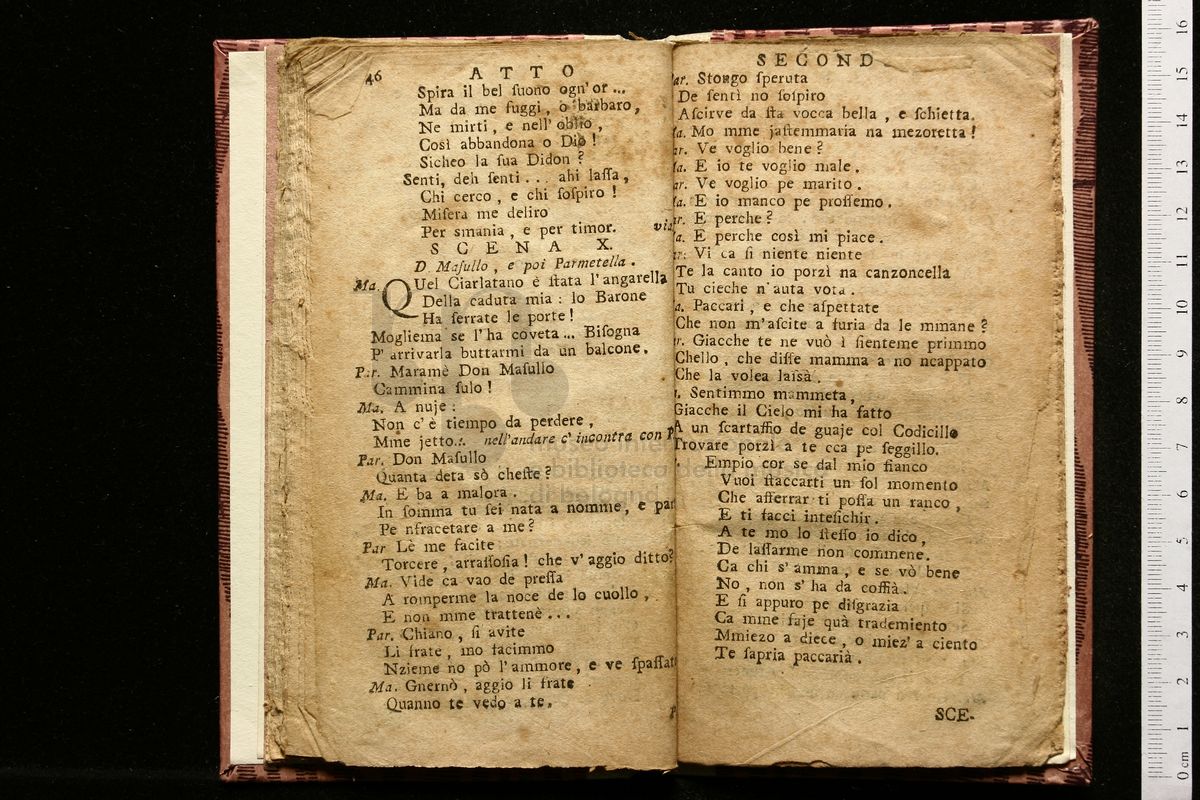 46
ATTO
Spira il bel ſuono ogn'or ...
Ma da me fuggi, o barbaro,
Ne mirti, e nell' oblio,
Così abbandona o Dio!
Sicheo la ſua Didon?
Senti, deh ſenti... ahi laſſa,
Chi cerco, e chi ſoſpiro!
Miſera me deliro
Per smania, e per timor. via
SCENA X.
D Maſullo, e poi Parmetella.
Ma. QUel Ciarlatano è ſtata l'angarella
Della caduta mia: lo Barone
Ha ſerrate le porte!
Mogliema se l'ha coveta... Biſogna
P' arrivarla buttarmi da un balcone.
Par. Maramè Don Maſullo
Cammina ſulo!
Ma. A nuje:
Non c'è tiempo da perdere,
Mme jetto.:. nell'andare c' incontra con P
Par. Don Maſullo
Quanta deta sò cheſte?
Ma. E ba a malora.
In ſomma tu ſei nata a nomme, e par
Pe nfracetare a me?
Par Lè me facite
Torcere, arraſſoſia! che v'aggio ditto?
Ma. Vide ca vao de preſſa
A romperme la noce de lo cuollo,
E non mme trattenè...
Par. Chiano, ſi avite
Li frate, mo facimmo
Nzieme no pò l'ammore, e ve ſpaſſat
Ma. Gnernò, aggio li frate
Quanno te vedo a te.
SECOND
ar. Stongo ſperuta
De ſentì no ſoſpiro
Aſcirve da ſta vocca bella, e ſchietta.
a. Mo mme jaſtemmaria na mezoretta!
ar. Ve voglio bene?
a. E io te voglio male.
ar. Ve voglio pe marito.
a. E io manco pe proſſemo.
ar. E perche?
a. E perche così mi piace.
ar: Vi ca ſi niente niente
Te la canto io porzì na canzoncella
Tu cieche n'auta vota.
a. Paccari, e che aſpettate
Che non m'aſcite a furia da le mmane?
ar. Giacche te ne vuò ì ſienteme primmo
Chello, che diſſe mamma a no ncappato
Che la volea laisà.
a. Sentimmo mammeta,
Giacche il Cielo mi ha fatto
A un ſcartaffio de guaje col Codicillo
Trovare porzì a te cca pe ſeggillo.
Empio cor se dal mio fianco
Vuoi ſtaccarti un ſol momento
Che afferrar ti poſſa un ranco,
E ti facci inteſichir.
A te mo lo ſteſſo io dico,
De laſſarme non commene.
Ca chi s'amma, e se vò bene
No, non s'ha da coffià.
E ſi appuro pe diſgrazia
Ca mme faje quà trademiento
Mmiezo a diece, o miez' a ciento
Te ſapria paccarià.
SCE-